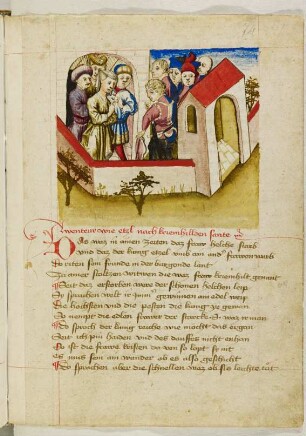 Aventeure wie etzel nach kreimhilden sante
Das was in ainen zeiten daz fraw helche starb
Und daz der kunig etzel umb ain frawen warb
Da rieten sein frunde in der burgonde lant
Zu ainer stoltzen witiwen die was fraw kreimhilt genant
Seit daz erstorben were der schonen helchen leip
Sy sprachen welt ir gewinnen ain edel weip
Die hochsten und die pesten die kunig ye gewan
So nempt die edlen
So sprach der kunig reiche wie macht daz ergan
Seit ich pin haiden und des tauffes nicht enhan
So ist die frawe kristen da von so lopt sy nit
es mus sein ain wunder ob es also geschicht
Do sprachen aber die schnellen was ob sis leichte tut